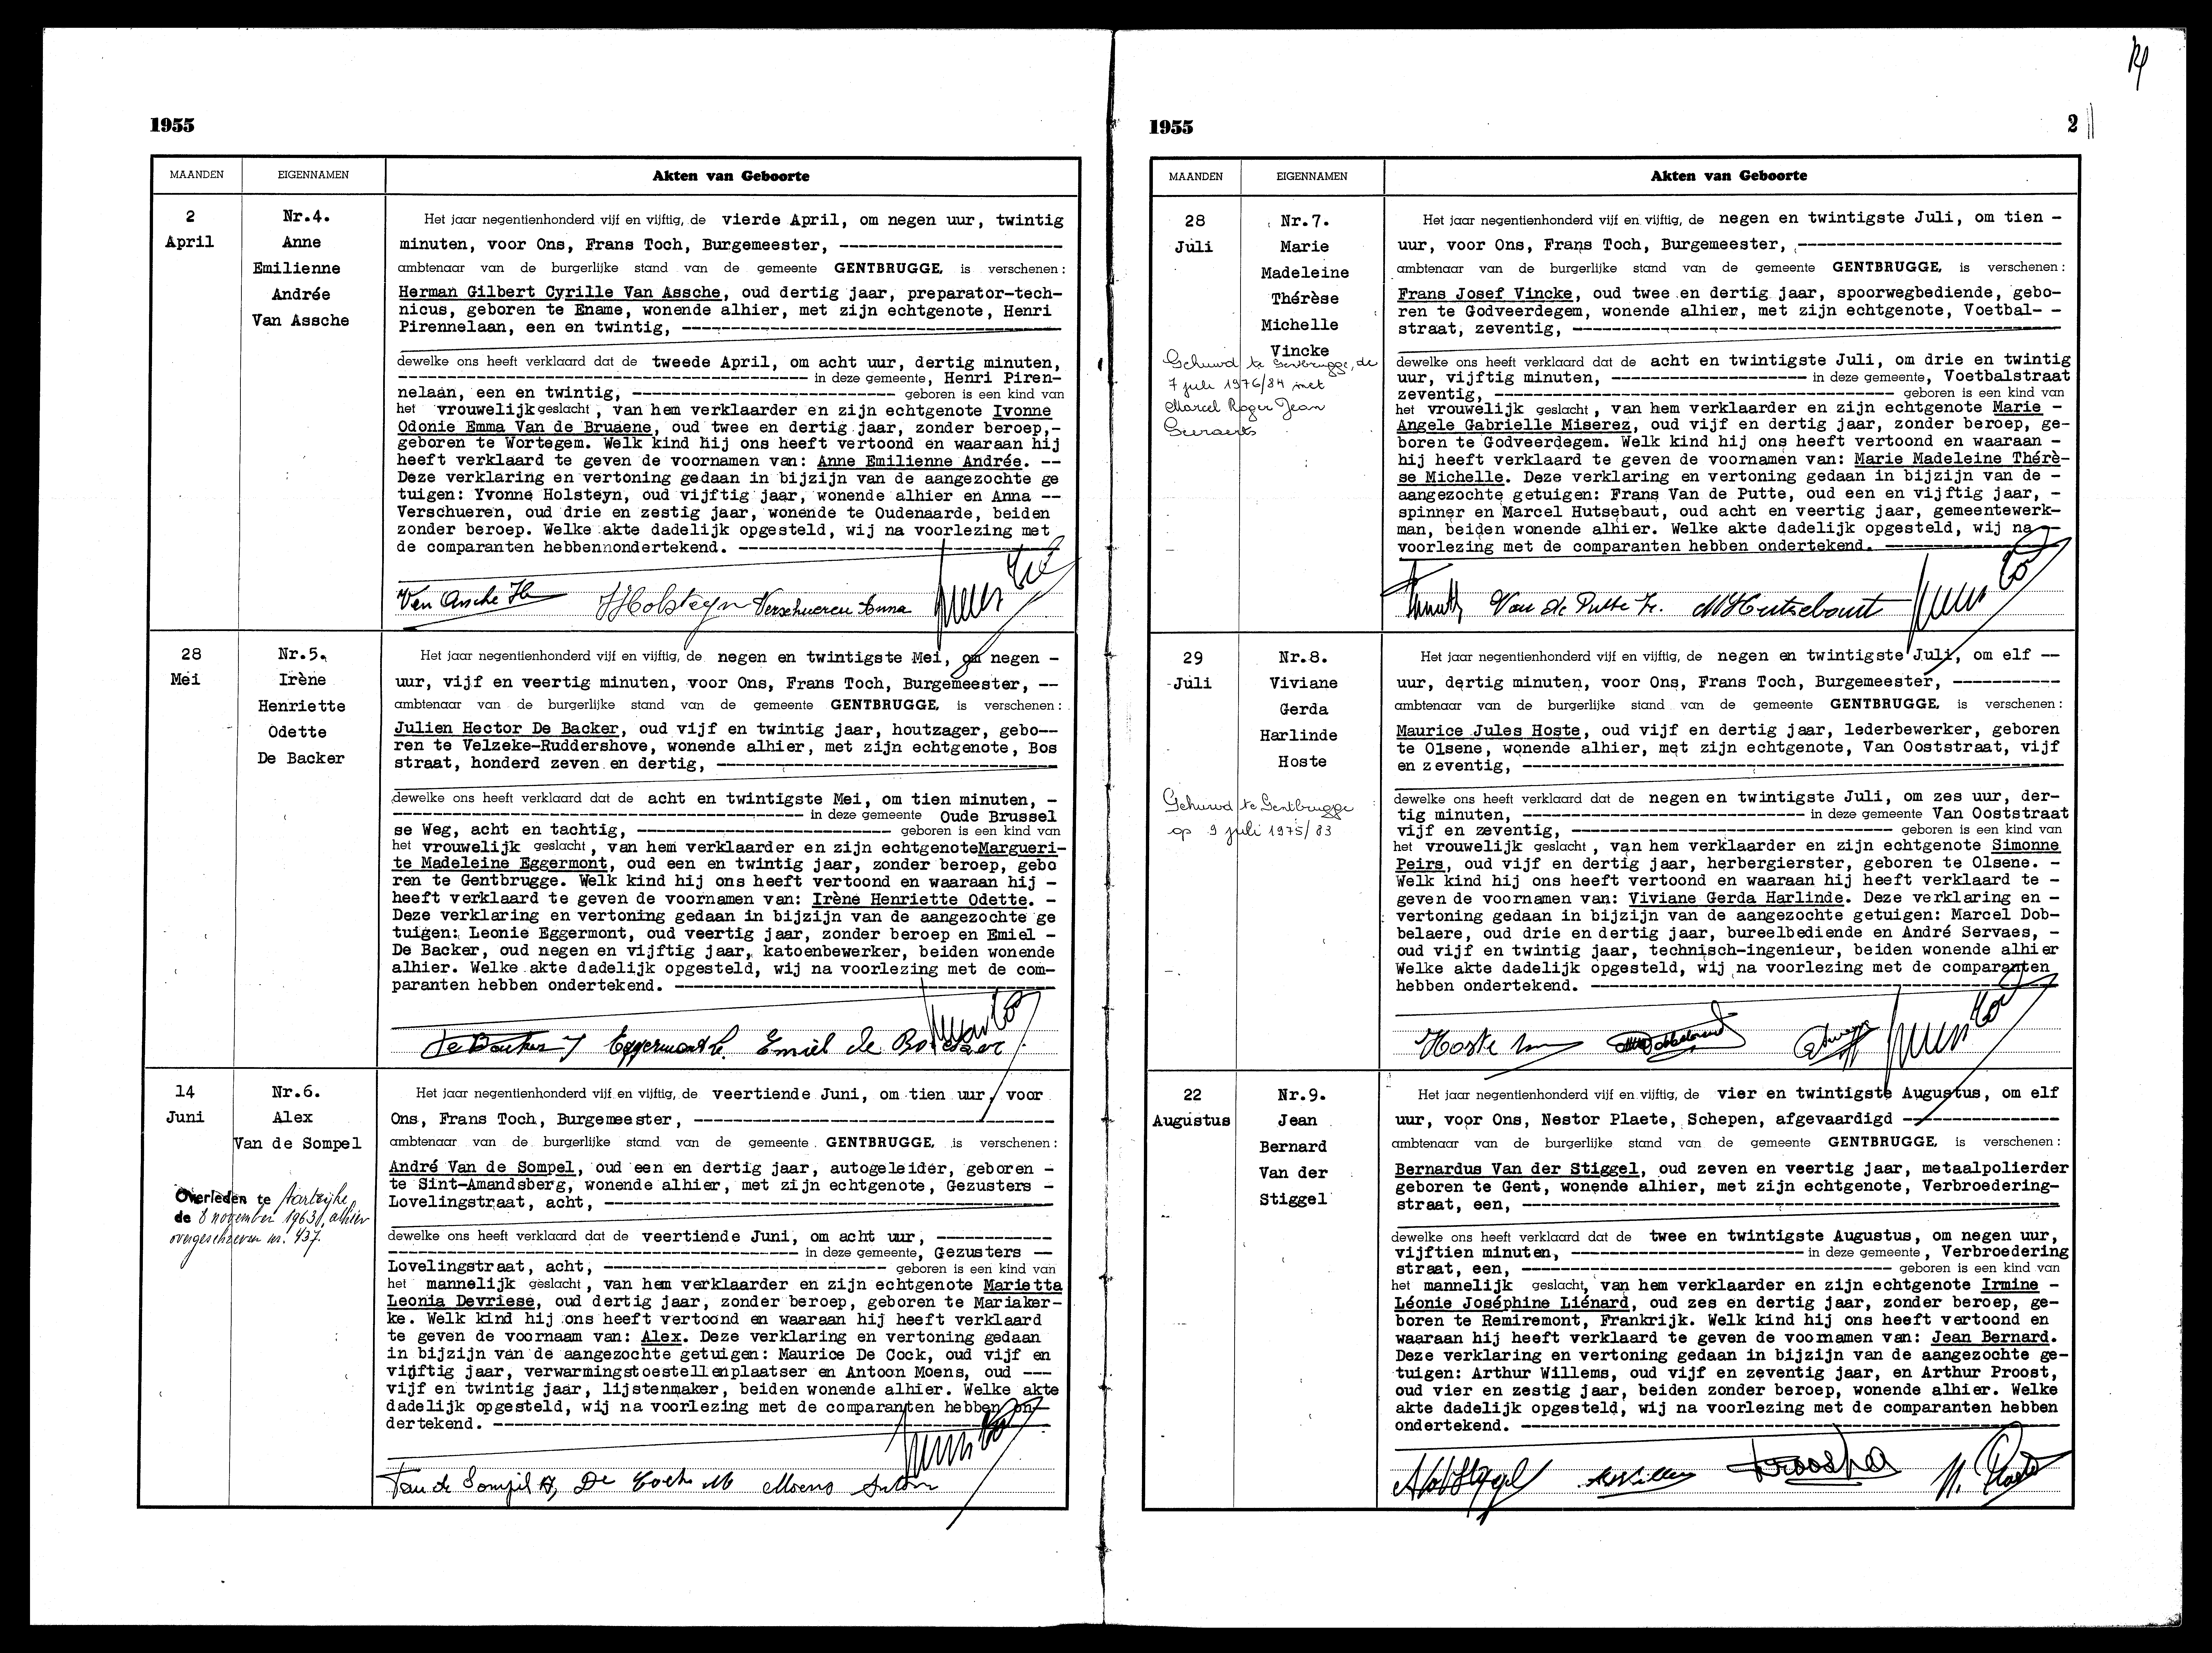 1955
MAANDEN
EIGENNAMEN
Akten van Geboorte
2
April
Nr.4.
Anne
Emilienne
Andrée
Van Assche
Het jaar negentienhonderd vijf en vijftig, de vierde April, om negen uur, twintig
minuten, voor Ons, Frans Toch, Burgemeester, --------------------------
ambtenaar van de burgerlijke stand van de gemeente GENTBRUGGE, is verschenen:
Herman Gilbert Cyrille Van Assche, oud dertig jaar, preparator-tech-
nicus, geboren te Ename, wonende alhier, met zijn echtgenote, Henri
Pirennelaan, een en twintig, --------------------------
dewelke ons heeft verklaard dat de tweede April, om acht uur, dertig minuten,
-------------------------- in deze gemeente, Henri Piren-
nelaan, een en twintig, -------------------------- geboren is een kind van
het vrouwelijk geslacht, van hem verklaarder en zijn echtgenote Ivonne
Odonie Emma Van de Bruaene, oud twee en dertig jaar, zonder beroep,-
geboren te Wortegem. Welk kind hij ons heeft vertoond en waaraan hij
heeft verklaard te geven de voornamen van: Anne Emilienne Andrée. --
Deze verklaring en vertoning gedaan in bijzijn van de aangezochte ge
tuigen: Yvonne Holsteyn, oud vijftig jaar, wonende alhier en Anna --
Verschueren, oud drie en zestig jaar, wonende te Oudenaarde, beiden
zonder beroep. Welke akte dadelijk opgesteld, wij na voorlezing met
de comparanten hebbennondertekend. --------------------------
Van Assche H Y Holsteyn Verschueren Anna
28
Mei
Nr.5.
Irène
Henriette
Odette
De Backer
Het jaar negentienhonderd vijf en vijftig, de negen en twintigste Mei, om negen -
uur, vijf en veertig minuten, voor Ons, Frans Toch, Burgemeester, --
ambtenaar van de burgerlijke stand van de gemeente GENTBRUGGE, is verschenen:
Julien Hector De Backer, oud vijf en twintig jaar, houtzager, gebo--
ren te Velzeke-Ruddershove, wonende alhier, met zijn echtgenote, Bos
straat, honderd zeven en dertig, --------------------------
dewelke ons heeft verklaard dat de acht en twintigste Mei, om tien minuten, -
-------------------------- in deze gemeente Oude Brussel
se Weg, acht en tachtig, -------------------------- geboren is een kind van
het vrouwelijk geslacht, van hem verklaarder en zijn echtgenoteMargueri-
te Madeleine Eggermont, oud een en twintig jaar, zonder beroep, gebo
ren te Gentbrugge. Welk kind hij ons heeft vertoond en waaraan hij -
heeft verklaard te geven de voornamen van: Irène Henriette Odette. -
Deze verklaring en vertoning gedaan in bijzijn van de aangezochte ge
tuigen: Leonie Eggermont, oud veertig jaar, zonder beroep en Emiel -
De Backer, oud negen en vijftig jaar, katoenbewerker, beiden wonende
alhier. Welke akte dadelijk opgesteld, wij na voorlezing met de com-
paranten hebben ondertekend. --------------------------
De Backer J Eggermont L. Emiel de Backer
14
Juni
Nr.6.
Alex
Van de Sompel
Overleden te Aartrijke
de 8 november 1963, alhier
overgeschreven nr. 437.
Het jaar negentienhonderd vijf en vijftig, de veertiende Juni, om tien uur, voor
Ons, Frans Toch, Burgemeester, --------------------------
ambtenaar van de burgerlijke stand van de gemeente GENTBRUGGE, is verschenen:
André Van de Sompel, oud een en dertig jaar, autogeleider, geboren -
te Sint-Amandsberg, wonende alhier, met zijn echtgenote, Gezusters -
Lovelingstraat, acht, --------------------------
dewelke ons heeft verklaard dat de veertiende Juni, om acht uur, ------------
-------------------------- in deze gemeente, Gezusters --
Lovelingstraat, acht, -------------------------- geboren is een kind van
het mannelijk geslacht, van hem verklaarder en zijn echtgenote Marietta
Leonia Devriese, oud dertig jaar, zonder beroep, geboren te Mariaker-
ke. Welk kind hij ons heeft vertoond en waaraan hij heeft verklaard
te geven de voornaam van: Alex. Deze verklaring en vertoning gedaan
in bijzijn van de aangezochte getuigen: Maurice De Cock, oud vijf en
vijftig jaar, verwarmingstoestellenplaatser en Antoon Moens, oud ---
vijf en twintig jaar, lijstenmaker, beiden wonende alhier. Welke akte
dadelijk opgesteld, wij na voorlezing met de comparanten hebben on-
dertekend. --------------------------
Van de Sompel A, De Cock M Moens Antoon
1955
2
MAANDEN
EIGENNAMEN
Akten van Geboorte
28
Juli
Nr.7.
Marie
Madeleine
Thérèse
Michelle
Vincke
Gehuwd te Gentbrugge, de
7 juli 1976/84 met
Marcel Roger Jean
Geeraerts
Het jaar negentienhonderd vijf en vijftig, de negen en twintigste Juli, om tien -
uur, voor Ons, Frans Toch, Burgemeester, --------------------------
ambtenaar van de burgerlijke stand van de gemeente GENTBRUGGE, is verschenen:
Frans Josef Vincke, oud twee en dertig jaar, spoorwegbediende, gebo-
ren te Godveerdegem, wonende alhier, met zijn echtgenote, Voetbal- -
straat, zeventig, --------------------------
dewelke ons heeft verklaard dat de acht en twintigste Juli, om drie en twintig
uur, vijftig minuten, ---------------------- in deze gemeente, Voetbalstraat
zeventig, -------------------------- geboren is een kind van
het vrouwelijk geslacht, van hem verklaarder en zijn echtgenote Marie -
Angele Gabrielle Miserez, oud vijf en dertig jaar, zonder beroep, ge-
boren te Godveerdegem. Welk kind hij ons heeft vertoond en waaraan -
hij heeft verklaard te geven de voornamen van: Marie Madeleine Thérè-
se Michelle. Deze verklaring en vertoning gedaan in bijzijn van de -
aangezochte getuigen: Frans Van de Putte, oud een en vijftig jaar, -
spinner en Marcel Hutsebaut, oud acht en veertig jaar, gemeentewerk-
man, beiden wonende alhier. Welke akte dadelijk opgesteld, wij na --
voorlezing met de comparanten hebben ondertekend. --------------------------
Van de Putte Fr. M Hutsebaut
29
Juli
Nr.8.
Viviane
Gerda
Harlinde
Hoste
Gehuwd te Gentbrugge
op 9 juli 1975/83
Het jaar negentienhonderd vijf en vijftig, de negen en twintigste Juli, om elf --
uur, dertig minuten, voor Ons, Frans Toch, Burgemeester, -----------
ambtenaar van de burgerlijke stand van de gemeente GENTBRUGGE, is verschenen:
Maurice Jules Hoste, oud vijf en dertig jaar, lederbewerker, geboren
te Olsene, wonende alhier, met zijn echtgenote, Van Ooststraat, vijf
en zeventig, --------------------------
dewelke ons heeft verklaard dat de negen en twintigste Juli, om zes uur, der-
tig minuten, -------------------------- in deze gemeente Van Ooststraat
vijf en zeventig, -------------------------- geboren is een kind van
het vrouwelijk geslacht, van hem verklaarder en zijn echtgenote Simonne
Peirs, oud vijf en dertig jaar, herbergierster, geboren te Olsene. -
Welk kind hij ons heeft vertoond en waaraan hij heeft verklaard te -
geven de voornamen van: Viviane Gerda Harlinde. Deze verklaring en -
vertoning gedaan in bijzijn van de aangezochte getuigen: Marcel Dob-
belaere, oud drie en dertig jaar, bureelbediende en André Servaes, -
oud vijf en twintig jaar, technisch-ingenieur, beiden wonende alhier
Welke akte dadelijk opgesteld, wij na voorlezing met de comparanten
hebben ondertekend. --------------------------
Hoste
22
Augustus
Nr.9.
Jean
Bernard
Van der
Stiggel
Het jaar negentienhonderd vijf en vijftig, de vier en twintigste Augustus, om elf
uur, voor Ons, Nestor Plaete, Schepen, afgevaardigd ----------------
ambtenaar van de burgerlijke stand van de gemeente GENTBRUGGE, is verschenen:
Bernardus Van der Stiggel, oud zeven en veertig jaar, metaalpolierder
geboren te Gent, wonende alhier, met zijn echtgenote, Verbroedering-
straat, een, --------------------------
dewelke ons heeft verklaard dat de twee en twintigste Augustus, om negen uur,
vijftien minuten, -------------------------- in deze gemeente, Verbroedering
straat, een, -------------------------- geboren is een kind van
het mannelijk geslacht, van hem verklaarder en zijn echtgenote Irmine -
Léonie Joséphine Liénard, oud zes en dertig jaar, zonder beroep, ge-
boren te Remiremont, Frankrijk. Welk kind hij ons heeft vertoond en
waaraan hij heeft verklaard te geven de voornamen van: Jean Bernard.
Deze verklaring en vertoning gedaan in bijzijn van de aangezochte ge-
tuigen: Arthur Willems, oud vijf en zeventig jaar, en Arthur Proost,
oud vier en zestig jaar, beiden zonder beroep, wonende alhier. Welke
akte dadelijk opgesteld, wij na voorlezing met de comparanten hebben
ondertekend. --------------------------
N. Plaete